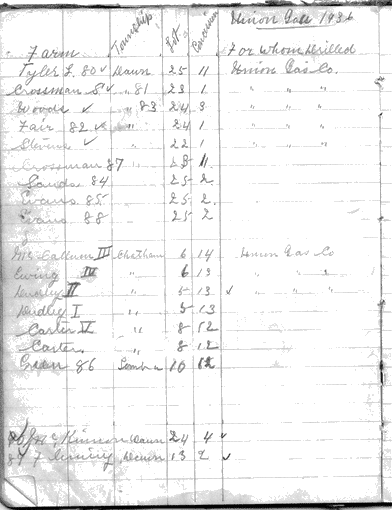 Union Gas 1936
Farm Township Lot Concession For Whom Drilled
Tyler L. 80 ✓ Dawn 25 11 Union Gas Co.
Crossman 5 ✓ " 81 23 1 " " "
Woods ✓ " 83 24 3 " " "
Fair 82 ✓ " 24 1 " " "
Stevens ✓ " 22 1 " " "
Crossman 87 23 11
Sands 84 25 2
Evans 85 25 2
Evans 88 25 2
Mc Callum III Chatham 6 14 Union Gas Co
Ewing IV " 6 13 " " "
Dudley II " 5 13 ✓ " " "
Dudley I " 5 13
Carter V " 8 12
Carter " 8 12
Green 86 Sombra 10 12
Mc Kinnon Dawn 24 4 ✓
Fleming Dawn 13 2 ✓